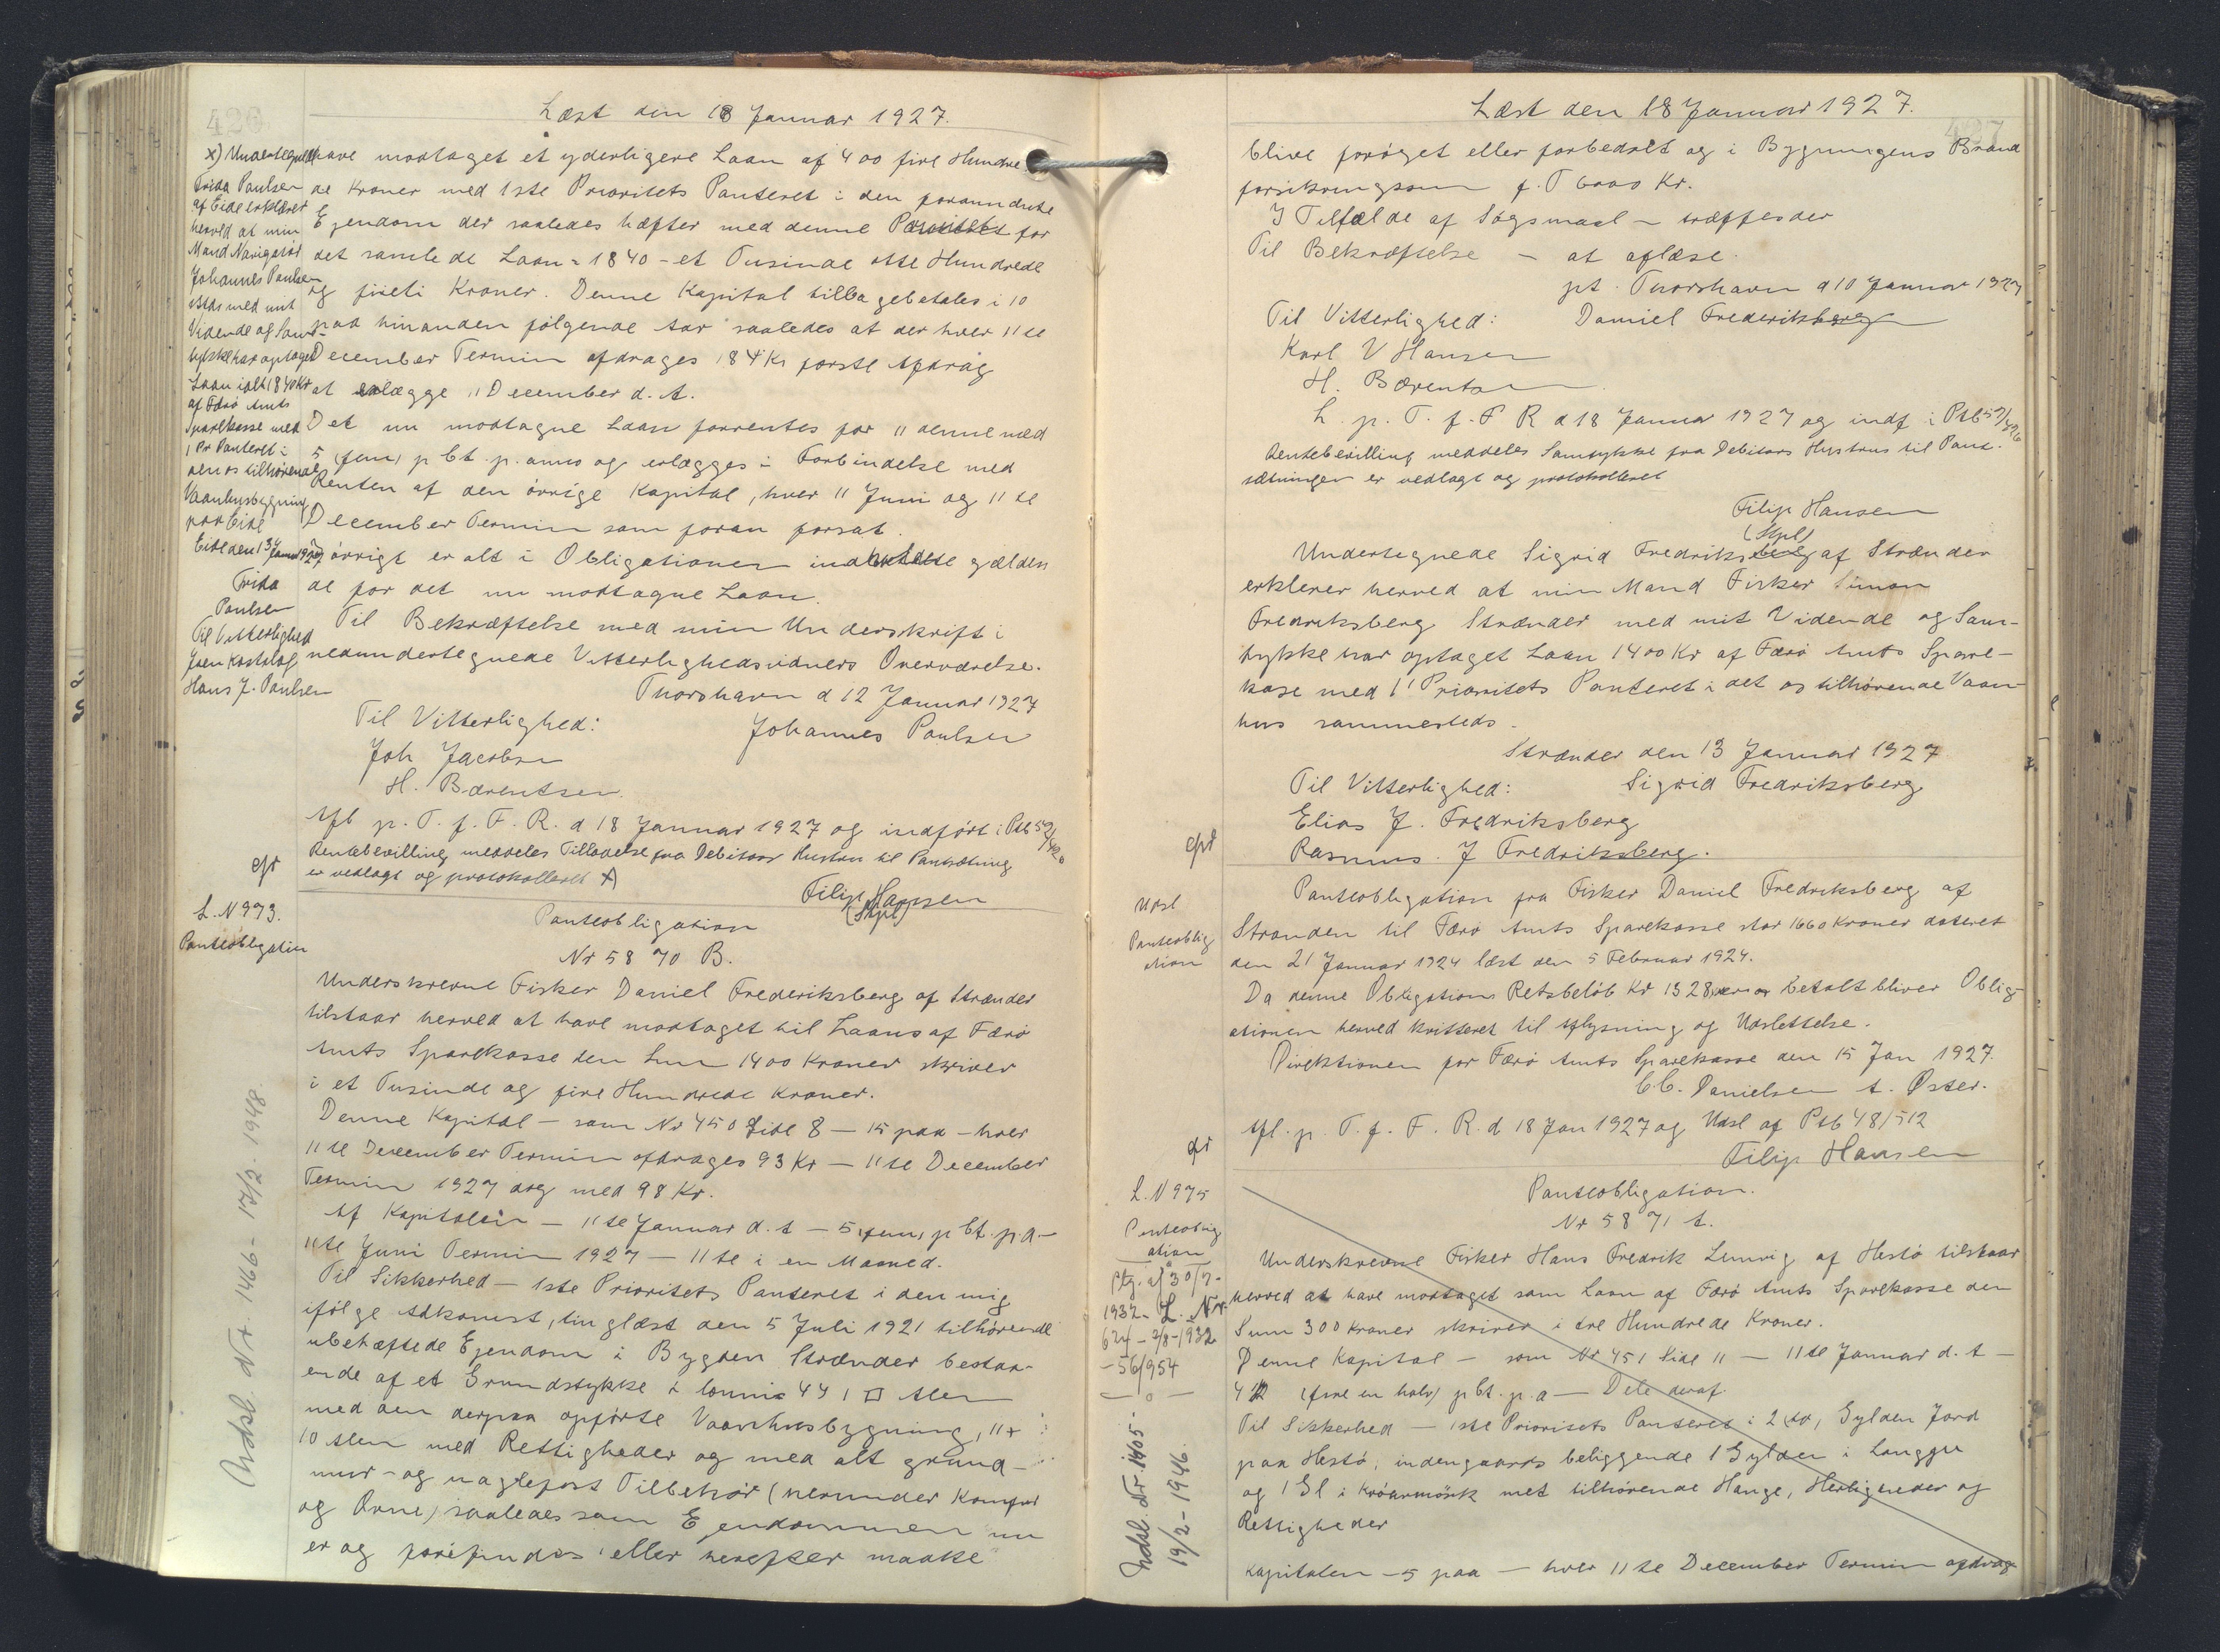 426
Læst den 18 Januar 1927.
x) Undertegnede
Frida Paulsen
af Eide erklærer
herved at min
Mand Navigatør
Johannes Paulsen
ibids med mit
Vidende og Sam-
tykke har optaget
Laan ialt 1840 Kr
af Færø Amts
Sparekasse med
1 Pr Panteret i
den os tilhørende
Vaanhusbygning
paa Eide
Eide den 13 Januar 1927
Frida
Paulsen
Til Vitterlighed
Joen Kastalag
Hans J. Paulsen
have modtaget et yderligere Laan af 400 fire Hundre
de Kroner med 1ste Prioritets Panteret i den forannævnte
Ejendom der saaledes hæfter med denne Prioritet for
det samlede Laan = 1840 - et Tusinde otte Hundrede
og fireti Kroner. Denne Kapital tilbagebetales i 10
paa hinanden følgende Aar saaledes at der hver 11te
December Termin afdrages 184 Kr første Afdrag
at erlægge 11 December d. A.
Det nu modtagne Laan forrentes fra 11 denne med
5 (fem) p Ct. p. anno og erlægges i Forbindelse med
Renten af den övrige Kapital, hver 11 Juni og 11te
December Termin som foran forsat.
I övrigt er alt i Obligationen indeholdte gælden
de for det nu modtagne Laan.
Til Bekræftelse med min Underskrift i
nedundertegnede Vitterlighedsvidners Overværelse.
Thorshavn d 12 Januar 1927
Til Vitterlighed: Johannes Paulsen
Joh Jacobsen
H. Bærentsen
Afl p. T. f. F. R. d 18 Januar 1927 og indført i Ptb 52/426
Rentebevilling meddeles Tilladelse fra Debitors Hustru til Pantsætning
er vedlagt og protokolleret x)
Filip Hansen
(Stpl)
L. N 973.
Panteobligation
Panteobligation
Nr 5870 B.
Underskrevne Fisker Daniel Frederiksberg af Strænder
tilstaar herved at have modtaget til Laans af Færø
Amts Sparekasse den Sum 1400 Kroner skriver
i et Tusinde og fire Hundrede Kroner.
Denne Kapital - som Nr 450 Side 8 - 15 paa - hver
11te December Termin afdrages 93 Kr - 11te December
Termin 1927 dog med 98 Kr.
Af Kapitalen - 11te Januar d. A - 5 (fem) p Ct. p. a -
11te Juni Termin 1927 - 11te i en Maaned.
Til Sikkerhed - 1ste Prioritets Panteret i den mig
ifølge Adkomst, tinglæst den 5 Juli 1921 tilhørende
ubehæftede Ejendom i Bygden Strænder bestaa-
ende af et Grundstykke 441 □ Alen
med den derpaa opførte Vaanhusbygning, 11 x
10 Alen med Rettigheder og med alt grund-
mur- og naglefast Tilbehør (herunder Komfur
og Ovne) saaledes som Ejendommen nu
er og forefindes eller herefter maatte
Udsl. Nr. 1466 - 17/2 - 1948
Læst den 18 Januar 1927.
427
blive forøget eller forbedret og i Bygningens Brand
forsikringssum f. T 6000 Kr.
I Tilfælde af Søgsmaal - træffes der
Til Bekræftelse - at aflæse.
pt. Thorshavn d 10 Januar 1927
Til Vitterlighed: Daniel Frederiksberg
Karl V Hansen
H. Bærentsen
L. p. T. f. F R d 18 Januar 1927 og indf i Ptb 52/426
Rentebevilling meddeles Samtykke fra Debitors Hustrus til Pant-
sætningen er vedlagt og protokolleret
Filip Hansen
(Stpl)
Undertegnede Sigrid Fredriksberg af Strænder
erklærer herved at min Mand Fisker Simon
Fredriksberg Strænder med mit Vidende og Sam-
tykke har optaget Laan 1400 Kr af Færø Amts Spare-
kase med 1' Prioritets Panteret i det os tilhørende Vaan-
hus sammesteds.
Strænder den 13 Januar 1927
Til Vitterlighed: Sigrid Fredriksberg
Elias J. Fredriksberg
Rasmus. J Fredriksberg.
Udsl
Panteoblig
ation
Panteobligation fra Fisker Daniel Fredriksberg af
Stranden til Færø Amts Sparekasse stor 1660 Kroner dateret
den 21 Januar 1924 læst den 5 Februar 1924.
Da denne Obligations Retsbeløb Kr 1328 er betalt bliver Oblig-
ationen herved kvitteret til Aflysning og Udslettelse.
Direktionen for Færø Amts Sparekasse den 15 Jan 1927.
C C. Danielsen A. Øster.
Afl. p. T. f. F. R. d 18 Jan 1927 og Udsl af Ptb 48/512
Filip Hansen
L. N 975
Panteoblig
ation
Ptg. af 30/7-
1932- L. Nr.
624 - 2/8-1932
- 56/954
- o -
Udsl. Nr. 1405 -
19/2-1946.
Panteobligation.
Nr 5871 A.
Underskrevne Fisker Hans Fredrik Lenvig af Hestø tilstaar
herved at have modtaget som Laan af Færø Amts Sparekasse den
Sum 300 Kroner skriver i tre Hundrede Kroner.
Denne Kapital - som Nr 451 Side 11 - 11te Januar d. A -
4 1/2 (fire en halv) p Ct. p. a - Dele deraf.
Til Sikkerhed - 1ste Prioritets Panteret i 2 (to) Gylden Jord
paa Hestø, indengaards beliggende 1 Gylden i Langgu
og 1 Gl i Króarmörk met tilhørende Hauge, Herligheder og
Rettigheder
Kapitalen - 5 paa - hver 11te December Termin afdrag